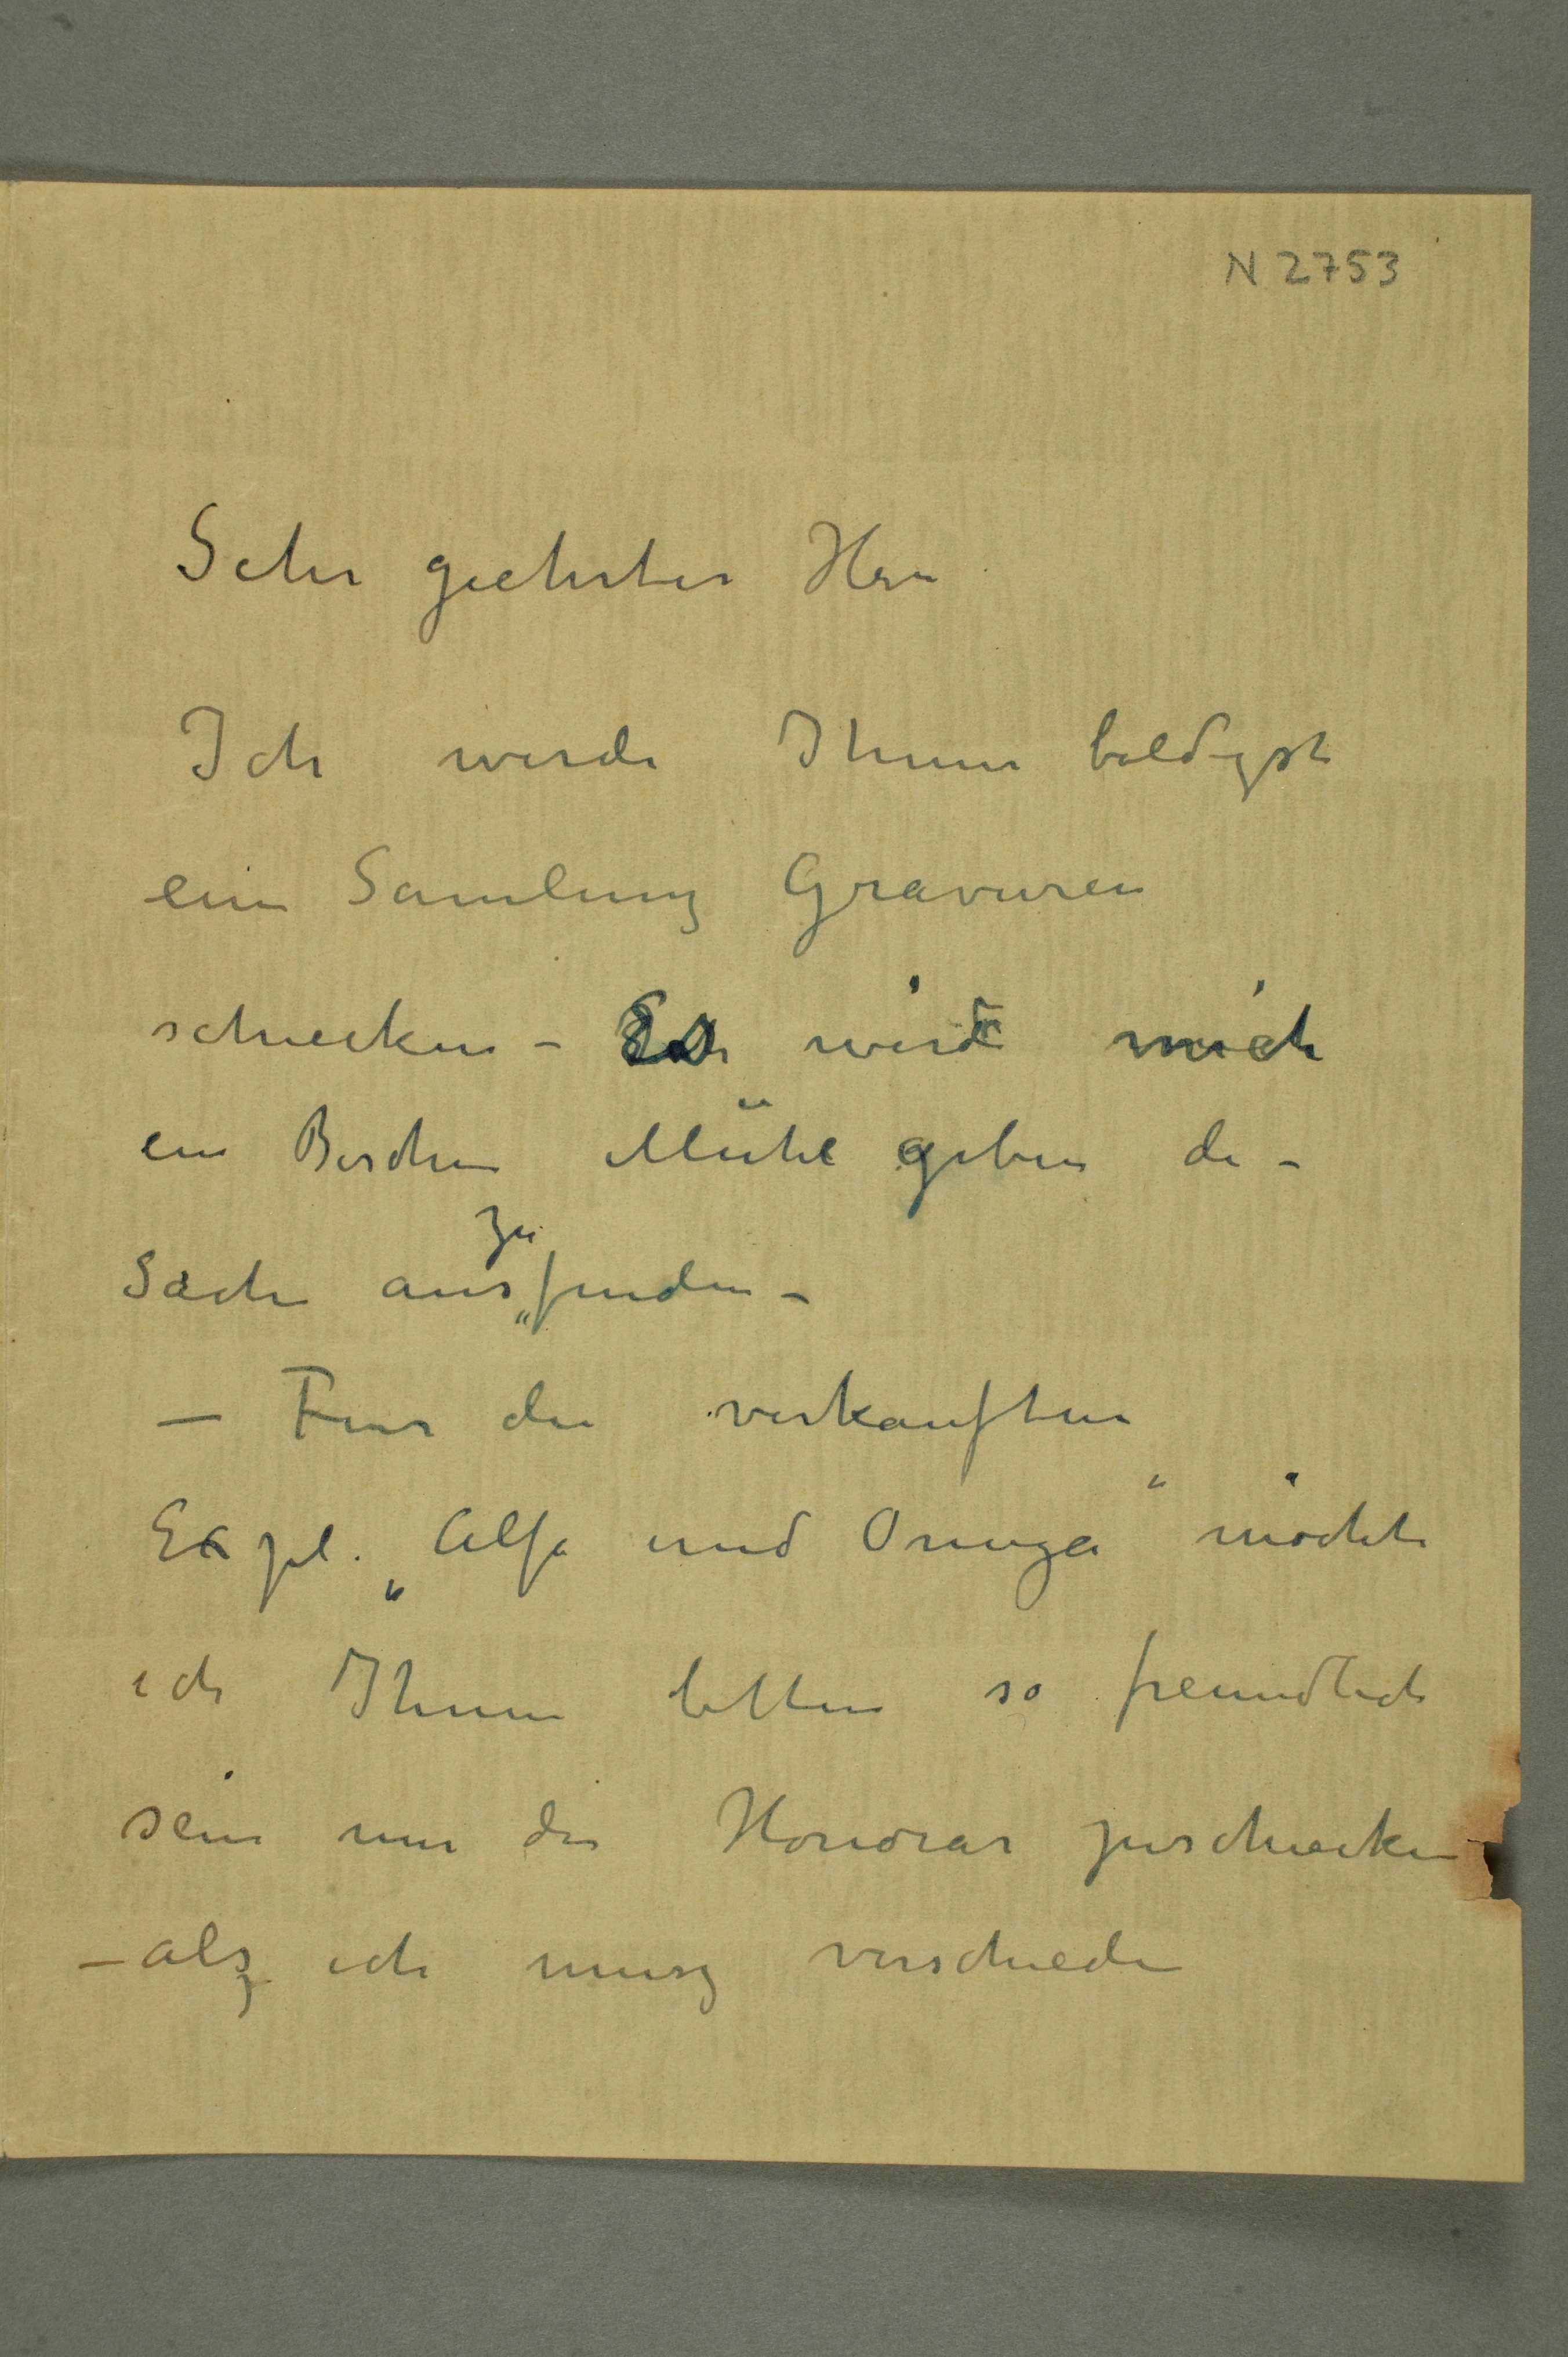 N 2753
Sehr geehrter Herr
Ich werde Ihnen baldigst
ein Samlung Gravuren
schicken – Es wird mich
ein Bischen Mühe geben die –
Sache aus zu finden –
– Fur die verkauften
Expl. „Alfa und Omega“ möchte
ich Ihnen bitten so freundlich
sein mir die Honorar zuschicken
– alz ich musz verschiede